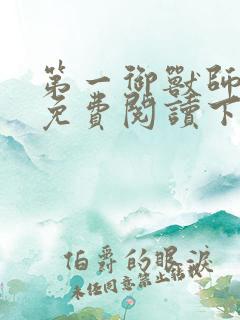 第一御獸師
免費閱讀下
伯爵的眼淚
未经同意禁止转载